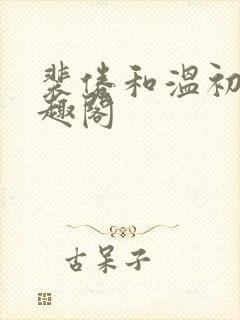 裴偆和温初
趣阁
古呆子